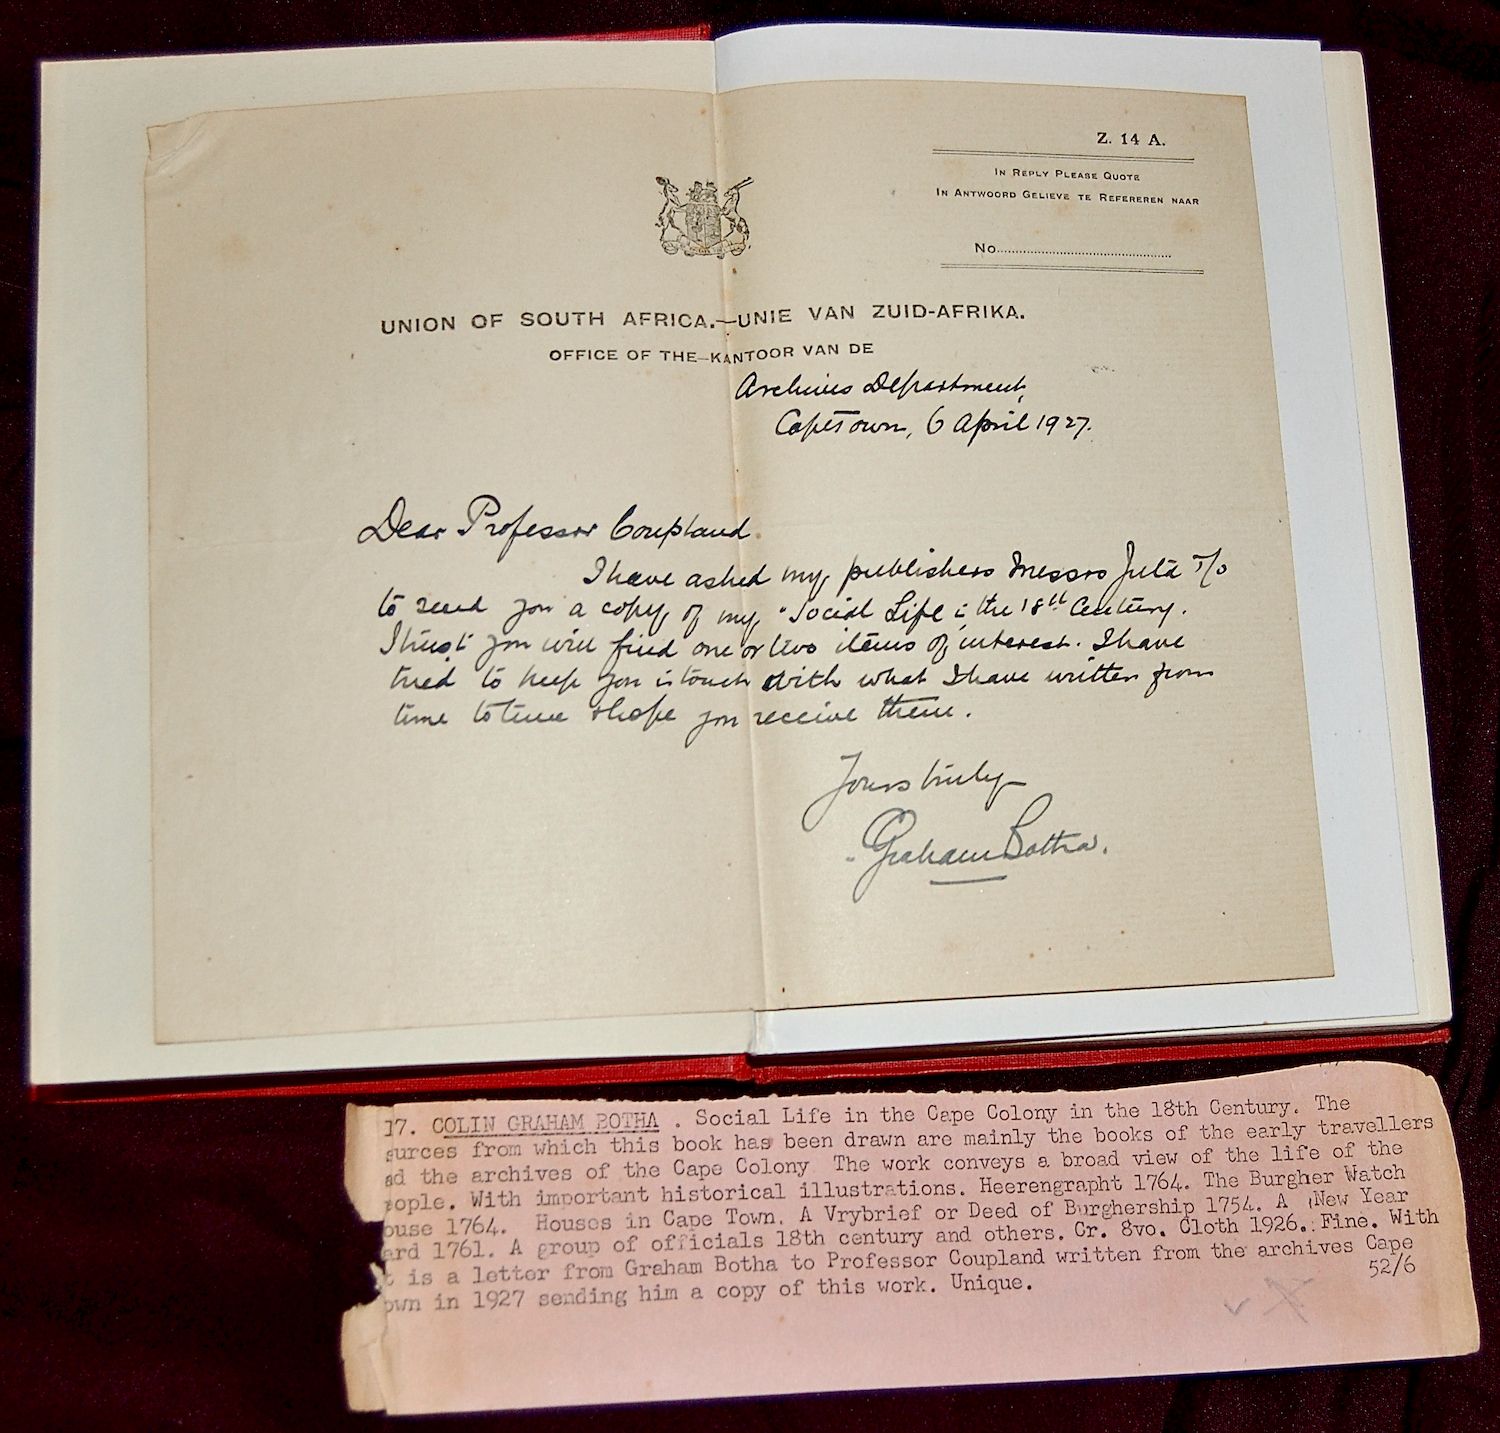 Z. 14 A.
In Reply Please Quote
In Antwoord Gelieve te Refereren naar
No.
UNION OF SOUTH AFRICA.—UNIE VAN ZUID-AFRIKA.
OFFICE OF THE—KANTOOR VAN DE
Archives Department,
Cape Town, 6 April 1927.
Dear Professor Coupland
I have asked my publishers Messrs Juta
to send you a copy of my "Social Life in the 18th Century.
I trust you will find one or two items of interest. I have
tried to keep you in touch with what I have written from
time to time & hope you receive them.
Yours truly
Graham Botha.
17. COLIN GRAHAM BOTHA . Social Life in the Cape Colony in the 18th Century. The
urces from which this book has been drawn are mainly the books of the early travellers
d the archives of the Cape Colony The work conveys a broad view of the life of the
ople. With important historical illustrations. Heerengrapht 1764. The Burgher Watch
ouse 1764. Houses in Cape Town. A Vrybrief or Deed of Burghership 1754. A New Year
ard 1761. A group of officials 18th century and others. Cr. 8vo. Cloth 1926. Fine. With
t is a letter from Graham Botha to Professor Coupland written from the archives Cape
own in 1927 sending him a copy of this work. Unique. 52/6